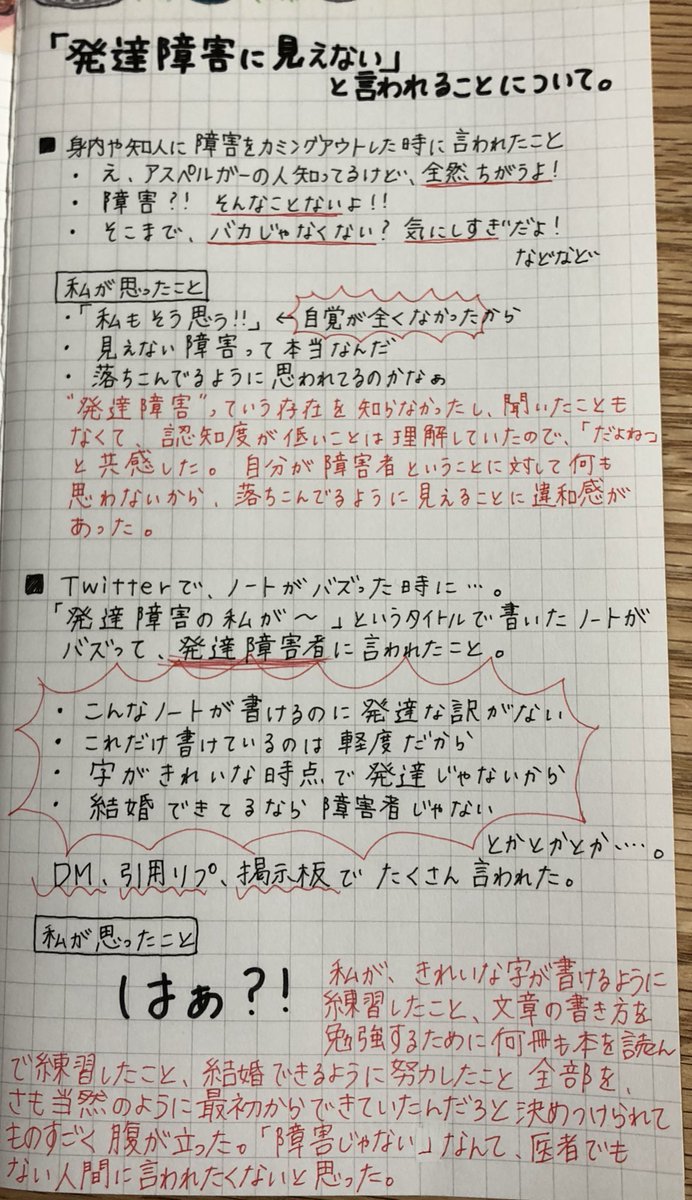 「発達障害に見えない」
と言われることについて。
■ 身内や知人に障害をカミングアウトした時に言われたこと
・え、アスペルガーの人知ってるけど、全然ちがうよ!
・障害?! そんなことないよ!!
・そこまで、バカじゃなくない? 気にしすぎだよ!
などなど
私が思ったこと
・「私もそう思う!!」 ← 自覚が全くなかったから
・見えない障害って本当なんだ
・落ちこんでるように思われてるのかなぁ
"発達障害"っていう存在を知らなかったし、聞いたことも
なくて、認知度が低いことは理解していたので、「だよねっ」
と共感した。自分が障害者ということに対して何も
思わないから、落ちこんでるように見えることに違和感が
あった。
■ Twitterで、ノートがバズった時に…。
「発達障害の私が〜」というタイトルで書いたノートが
バズって、発達障害者に言われたこと。
・こんなノートが書けるのに発達な訳がない
・これだけ書けているのは軽度だから
・字がきれいな時点で発達じゃないから
・結婚できてるなら障害者じゃない
とかとかとか….。
DM、引用リプ、掲示板でたくさん言われた。
私が思ったこと
はぁ?!
私が、きれいな字が書けるように
練習したこと、文章の書き方を
勉強するために何冊も本を読ん
で練習したこと、結婚できるように努力したこと全部を、
さも当然のように最初からできていたんだろと決めつけられて
ものすごく腹が立った。「障害じゃない」なんて、医者でも
ない人間に言われたくないと思った。